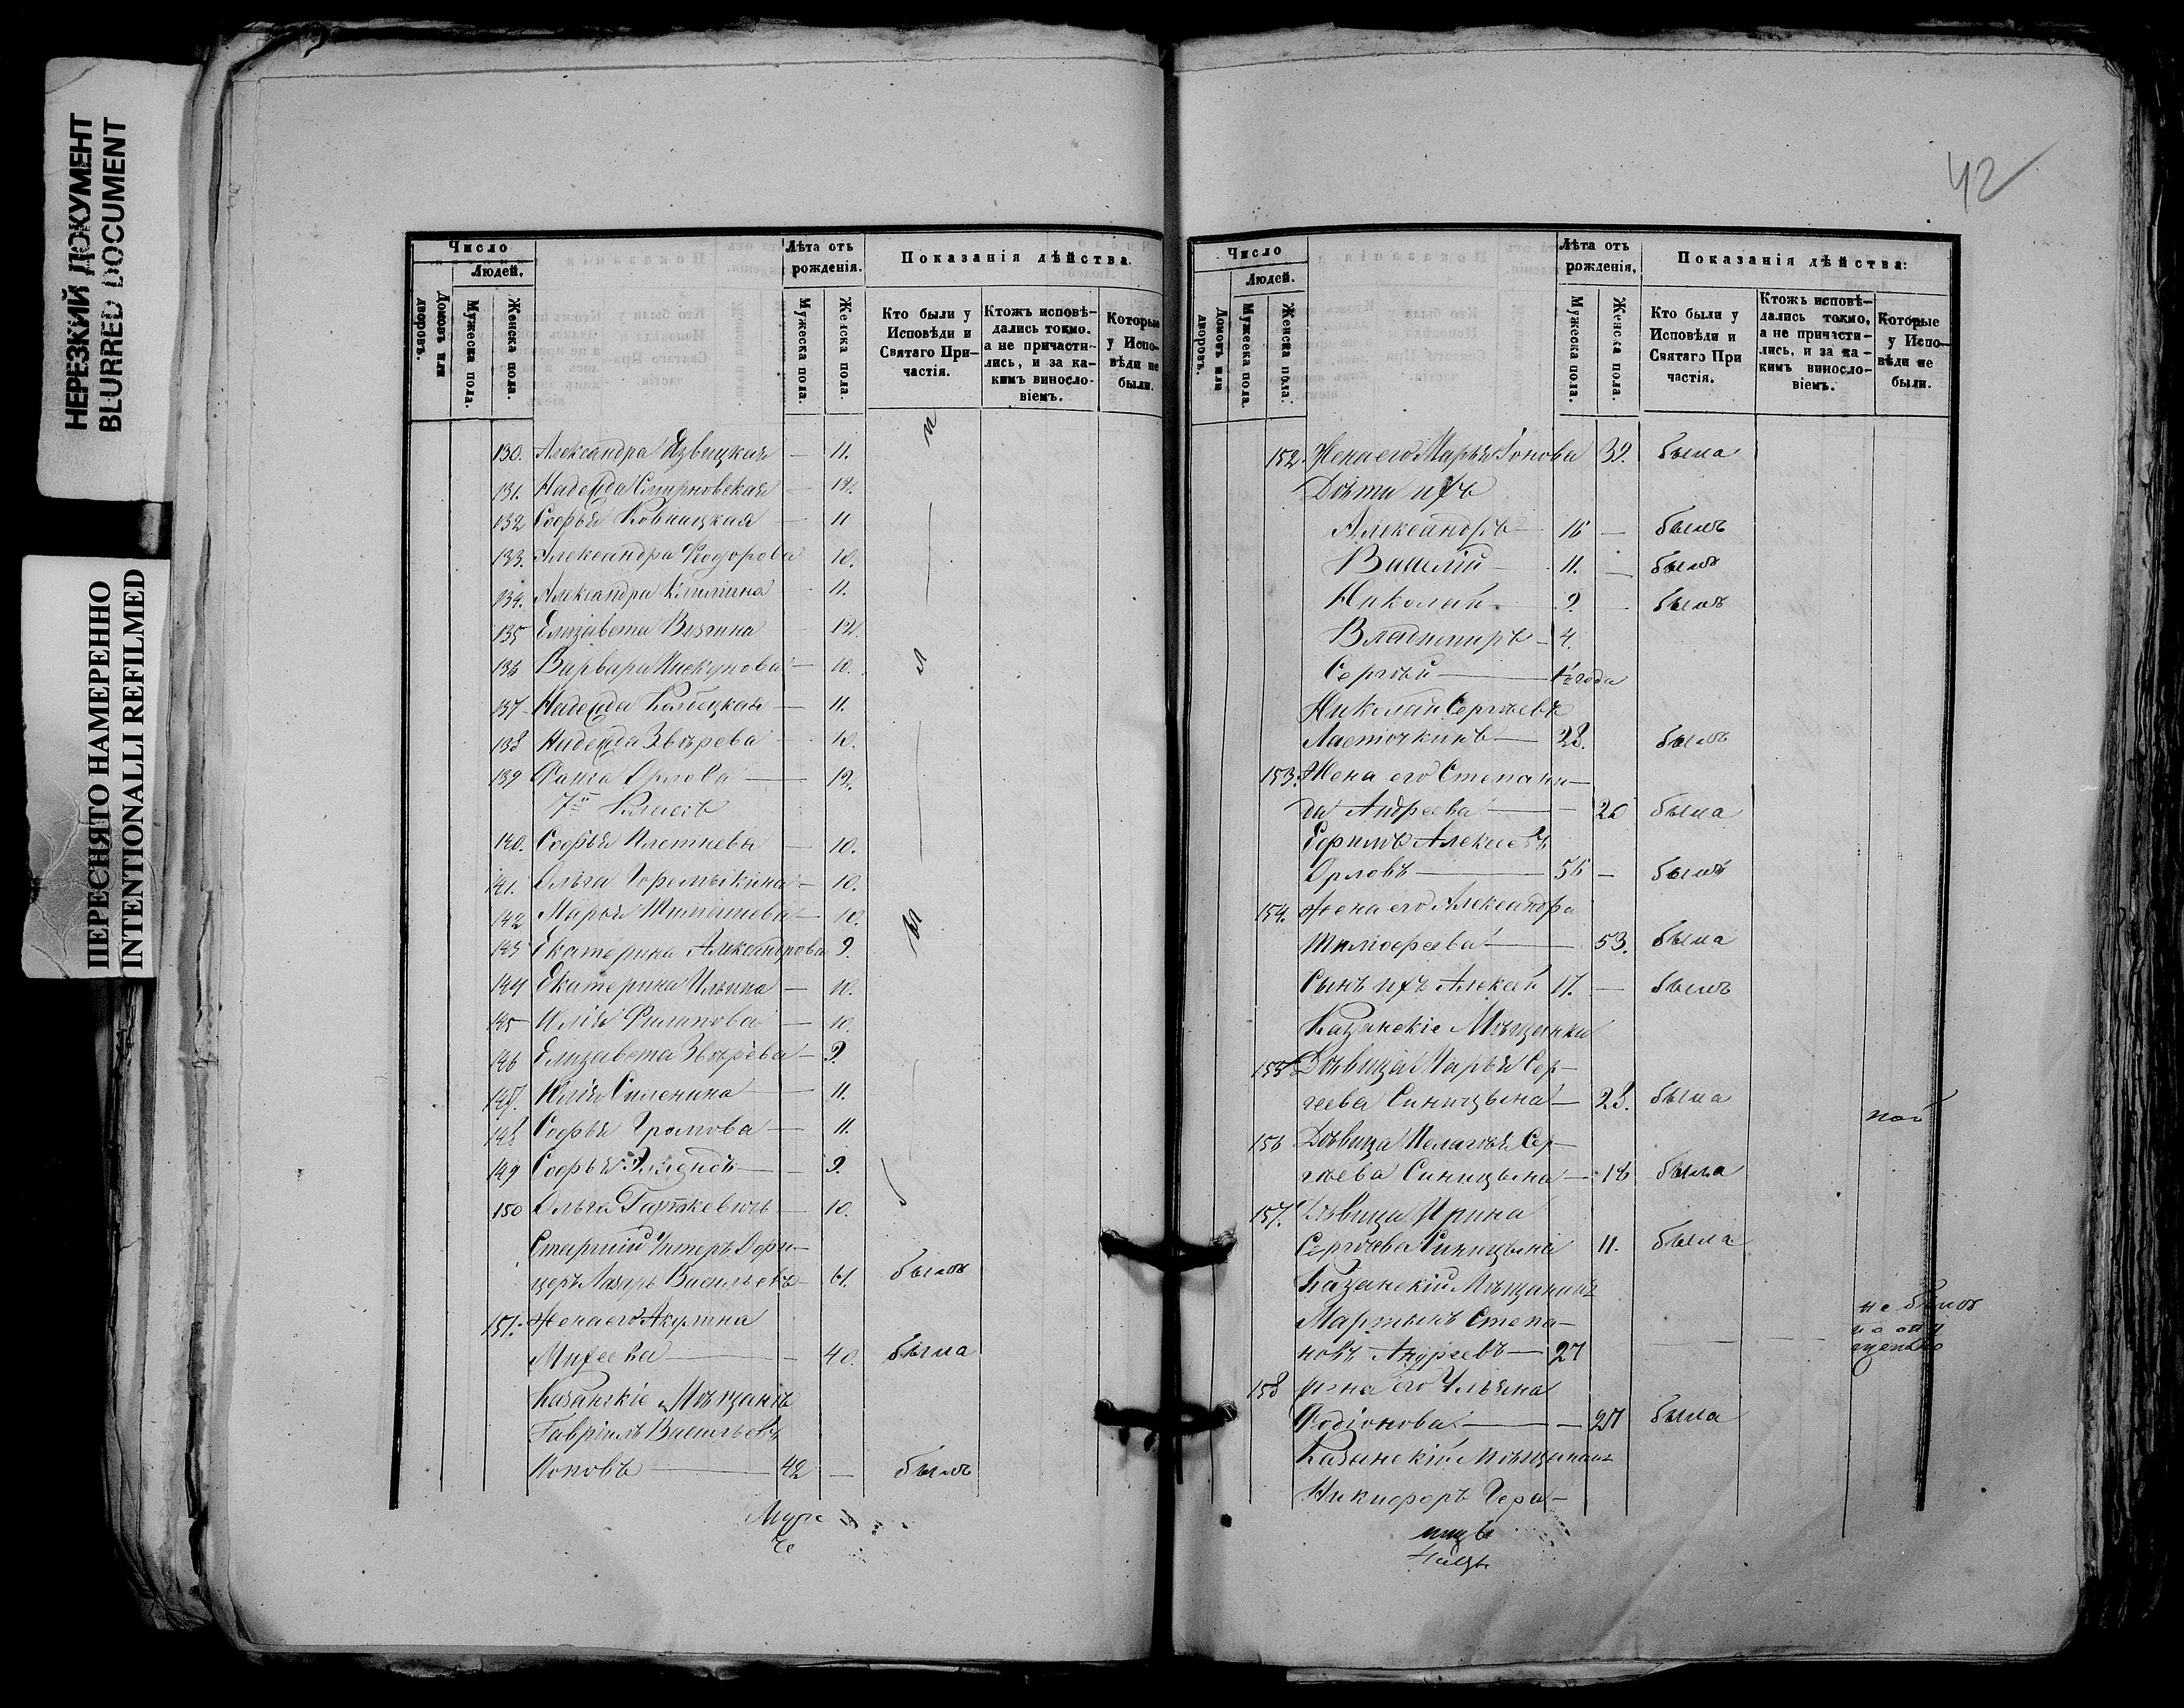 НЕРЕЗКИЙ ДОКУМЕНТ
BLURRED DOCUMENT
ПЕРЕСНЯТО НАМЕРЕННО
INTENTIONALLI REFILMED
Число
Людей.
Домовъ или дворовъ.
Мужеска пола.
Женска пола.
Лѣта отъ рожденія.
Мужеска пола.
Женска пола.
Показанія дѣйства.
Кто были у Исповѣди и Святаго Причастія.
Ктожъ исповѣдались токмо. а не причастились, и за какимъ винословіемъ.
Которые у Исповѣди не были.
130. Александра Язвицкая — 11.
131. Надежда Смирновская — 12.
132 Софья — 11
133. Александра Ѳеодорова 10.
134. Александра 11.
135 Елизавета 12.
136 Варвара Пискунова — 10.
137 Надежда — 11.
138 Надежда Звѣрева — 10.
139 Орлова — 12.
7й Классъ
140. Софья Плетнева — 10.
141. Ольга Горемыкина — 10.
142 Марья Тимашева — 10.
143 Екатерина Александрова 9.
144 Екатерина Ильина — 10.
145 Юлія Филипова — 10.
146 Елизавета Звѣрева — 9.
147. Юлія — 11.
148 Софья Громова — 11.
149 Софья — 9.
150 Ольга — 10.
Старшій Унтеръ Офи-
церъ Лазарь Васильевъ — 61. былъ
151. Жена его Акулина
Михеева — 40. была
Казанскіе Мѣщане
Гавріилъ Васильевъ
Поповъ — 42 — былъ
42
Число
Людей.
Домовъ или дворовъ.
Мужеска пола.
Женска пола.
Лѣта отъ рожденія.
Мужеска пола.
Женска пола.
Показанія дѣйства:
Кто были у Исповѣди и Святаго При частія.
Ктожъ исповѣдались токмо, а не причастились, и за какимъ винословіемъ.
Которые у Исповѣди не были.
152. Жена его Марья Іонова 39. была
Дѣти ихъ
Александръ — 16 — былъ
Василій — 11. — былъ
Николай — 9. — былъ
Владиміръ — 4.
Сергѣй — 1/2 года
Николай Сергѣевъ
Ласточкинъ — 28. былъ
153. Жена его Степани-
да Андреева — 20 была
Ефимъ Алексѣевъ
Орловъ — 56 — былъ
154. Жена его Александра
Тимофеева — 53. была
Сынъ ихъ Алексѣй 17. — былъ
Казанскіе Мѣщанки
155 Дѣвица Марья Сер-
геева Синицына — 23. была
156 Дѣвица Пелагея Сер-
гѣева Синицына — 18 была
157. Дѣвица Ирина
Сергѣева Синицына 11. была
Казанскій Мѣщанинъ
Мартынъ Степа-
новъ Андреевъ — 27 не былъ
158 Жена его Ульяна
Родіонова — 27 была
Казанскій Мѣщанинъ
Никифоръ Гера-